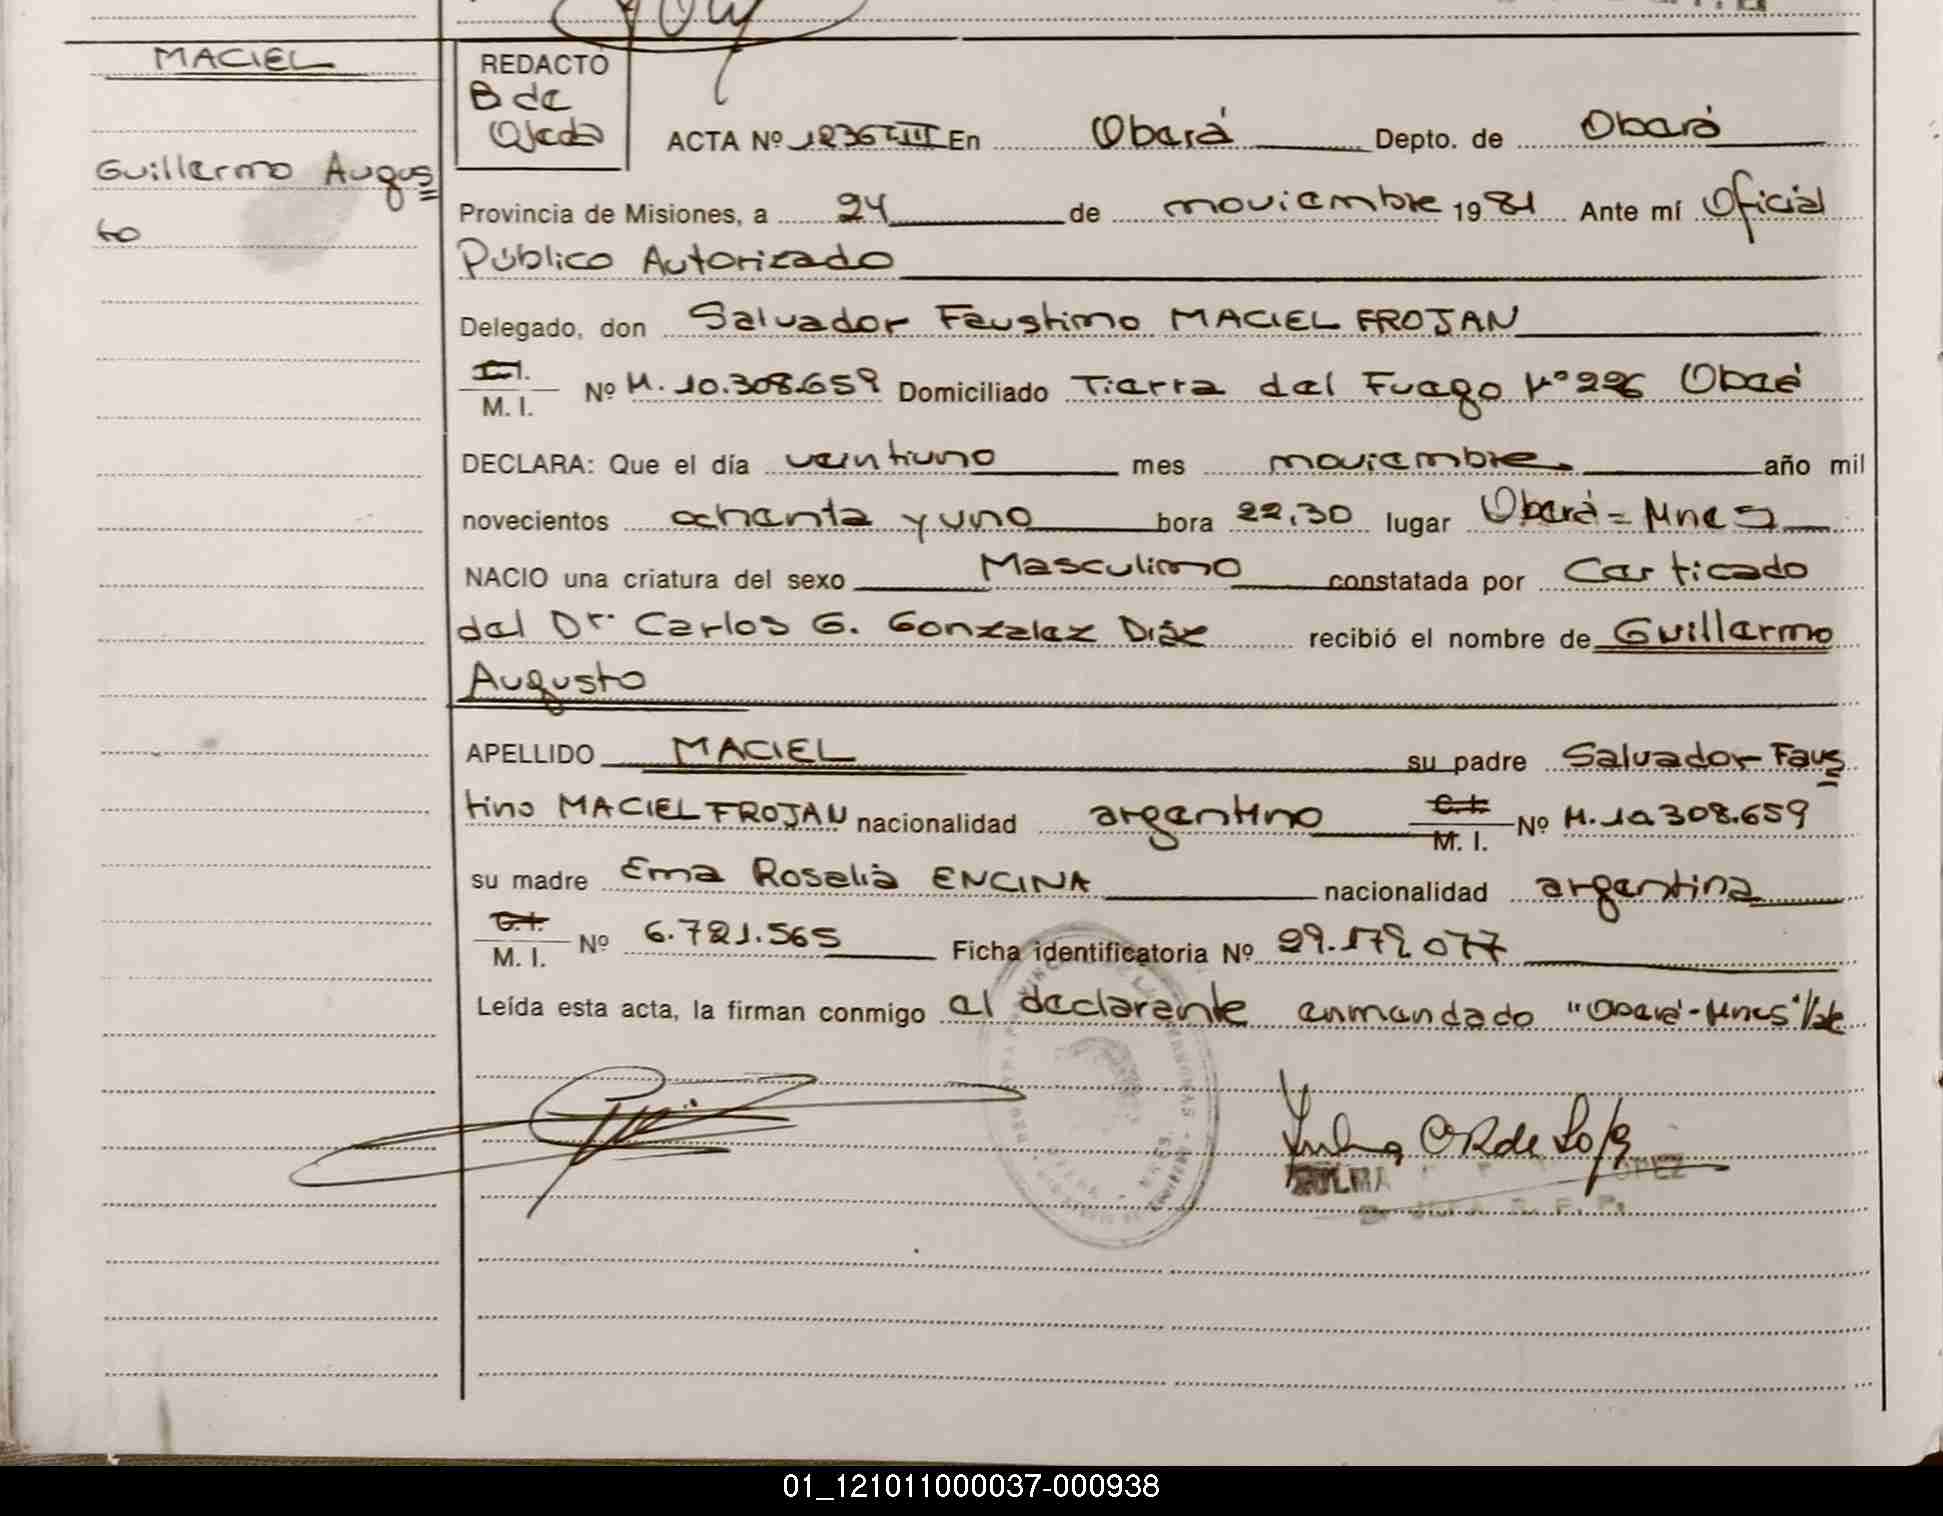 MACIEL
Guillermo Augus
to
REDACTO
B de
Ojeda
ACTA Nº 1236 T.III En Oberá Depto. de Oberá
Provincia de Misiones, a 24 de noviembre 1981 Ante mí Oficial
Público Autorizado
Delegado, don Salvador Faustino MACIEL FROJAN
M. I. Nº M. 10.308.659 Domiciliado Tierra del Fuego Nº 226 Oberá
DECLARA: Que el día veintiuno mes noviembre año mil
novecientos ochenta y uno hora 22,30 lugar Oberá = Mnes
NACIO una criatura del sexo Masculino constatada por Certicado
del Dr. Carlos G. Gonzalez Diáz recibió el nombre de Guillermo
Augusto
APELLIDO MACIEL su padre Salvador Faus
tino MACIEL FROJAN nacionalidad argentino C.I. M. I. Nº M. 10.308.659
su madre Ema Rosalia ENCINA nacionalidad argentina
C.I. M. I. Nº 6.721.565 Ficha identificatoria Nº 29.179.077
Leída esta acta, la firman conmigo el declarante enmendado "Oberá-Mnes" Vale
01_121011000037-000938